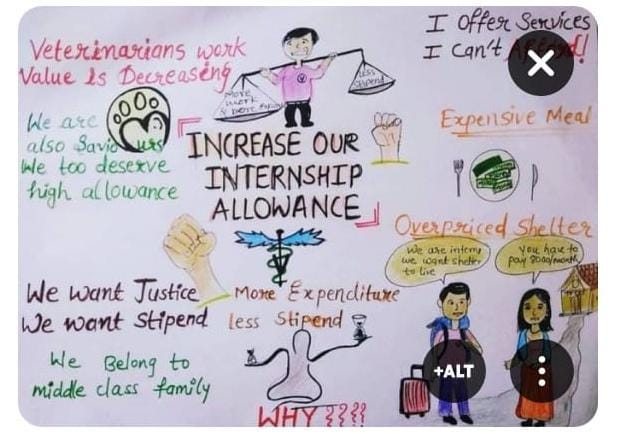 I Offer Services
I Can't
Veterinarians work
Value is Decreasing
More
work
less
Stipend
We are
also Saviours
We too deserve
high allowance
INCREASE OUR
INTERNSHIP
ALLOWANCE
Expensive Meal
Overpriced Shelter
We are interns
we want shelter
to live
You have to
pay 8000/month
We Want Justice
We want Stipend
More Expenditure
less Stipend
We Belong to
middle class family
WHY ????
+ALT